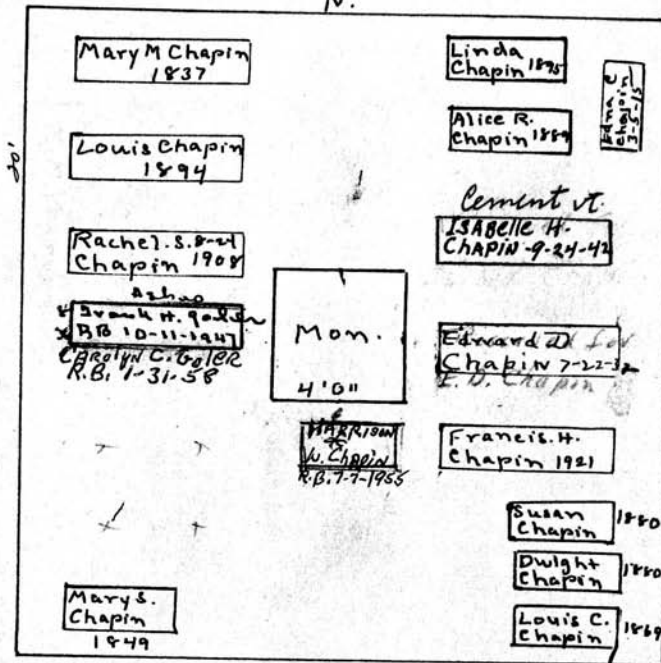 N.
20'
Mary M Chapin
1837
Louis Chapin
1894
Rachel. S. 8-24
Chapin 1908
Ashes
Frank H. Goler
RB 10-11-1947
CAROLYN C. GOLER
R.B. 1-31-58
Mary S.
Chapin
1849
Mon.
4'0"
HARRISON
W. Chapin
R.B. 7-7-1955
Linda
Chapin 1895
Edna C
Chapin
3-5-15
Alice R.
Chapin 1889
Cement vt.
ISABelle H.
CHAPIN-9-24-42
Edward D
Chapin 7-22-32
E. D. Chapin
Francis. H.
Chapin 1921
Susan
Chapin 1880
Dwight
Chapin 1880
Louis C.
Chapin 1869